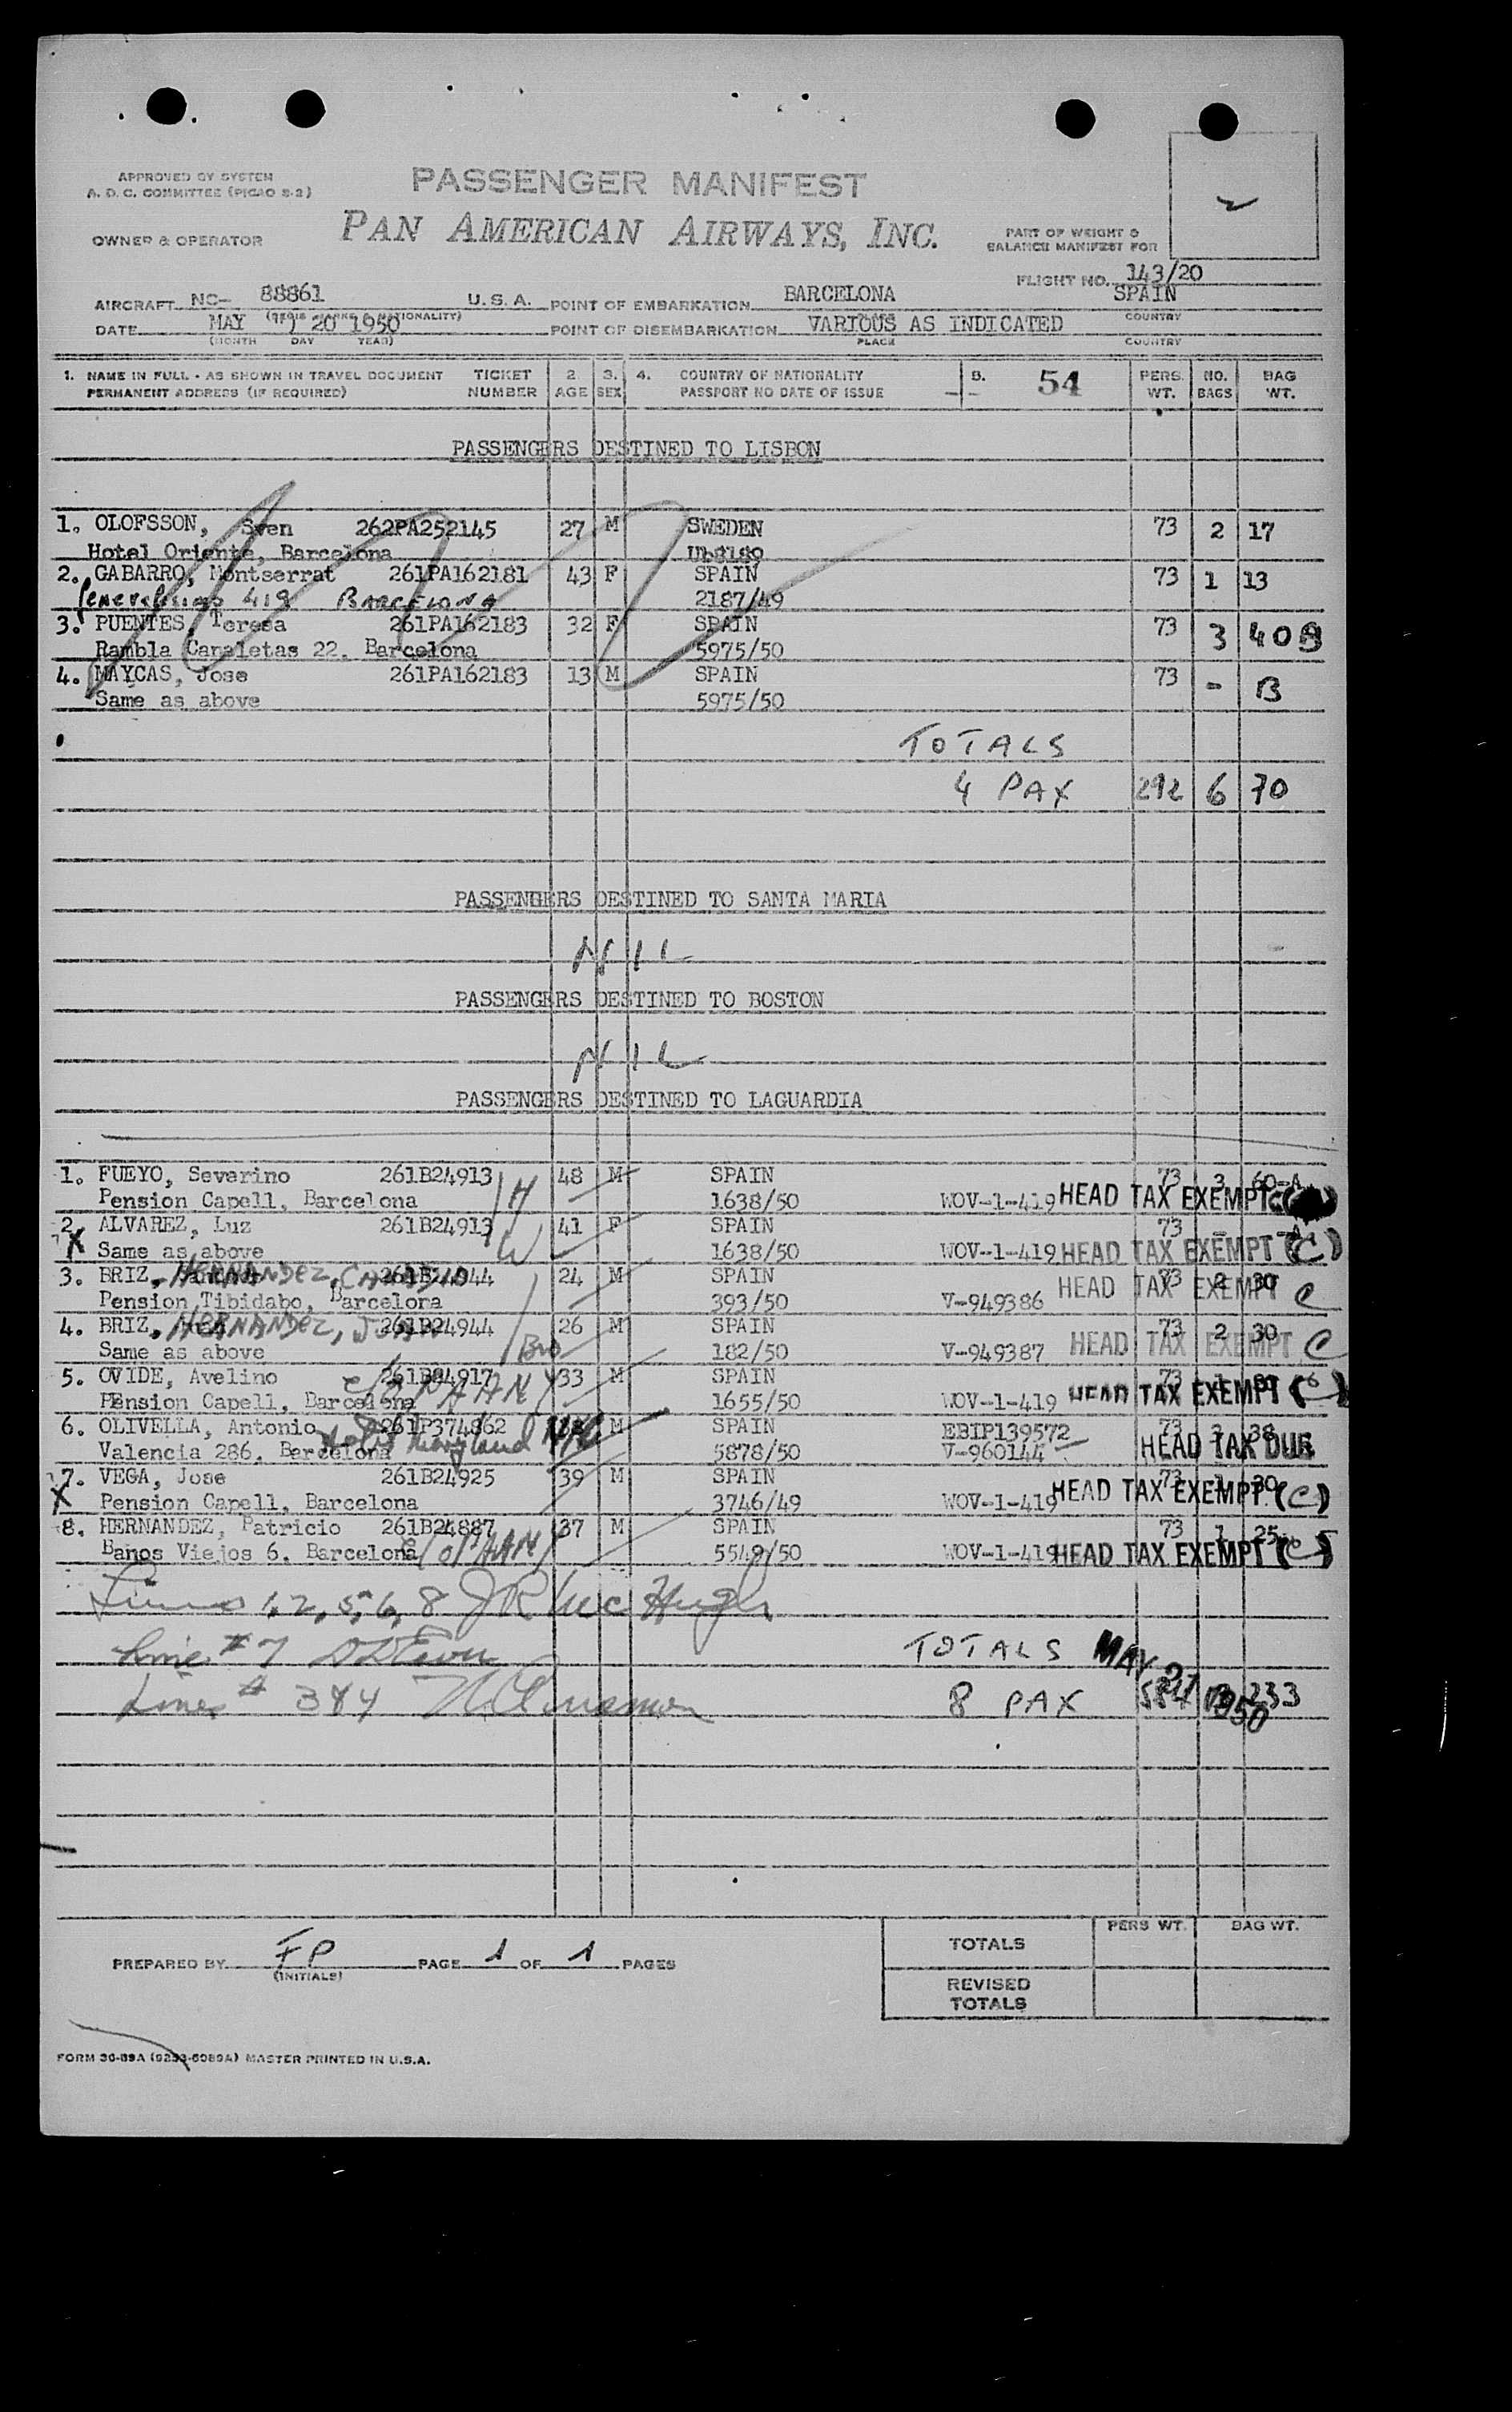 APPROVED BY SYSTEM
A. D. C. COMMITTEE (PICAO S-2)
PASSENGER MANIFEST
OWNER & OPERATOR
PAN AMERICAN AIRWAYS, INC.
PART OF WEIGHT &
BALANCE MANIFEST FOR
FLIGHT NO. 143/20
AIRCRAFT NC- 88861 U. S. A. POINT OF EMBARKATION BARCELONA SPAIN
DATE MAY 20 1950 POINT OF DISEMBARKATION VARIOUS AS INDICATED
(MONTH DAY YEAR) PLACE COUNTRY
1. NAME IN FULL - AS SHOWN IN TRAVEL DOCUMENT TICKET 2. 3. 4. COUNTRY OF NATIONALITY 5. 54 PERS. NO. BAG
PERMANENT ADDRESS (IF REQUIRED) NUMBER AGE SEX PASSPORT NO DATE OF ISSUE WT. BAGS WT.
PASSENGERS DESTINED TO LISBON
1. OLOFSSON, Sven 262PA252145 27 M SWEDEN 73 2 17
Hotel Oriente, Barcelona
2. GABARRO, Montserrat 261PA162181 43 F SPAIN 73 1 13
419 BARCELONA 2187/49
3. PUENTES, Teresa 261PA162183 32 F SPAIN 73 3 40
Rambla Canaletas 22. Barcelona 5975/50
4. MAYCAS, Jose 261PA162183 13 M SPAIN 73 -
Same as above 5975/50
TOTALS
4 PAX 292 6 70
PASSENGERS DESTINED TO SANTA MARIA
NIL
PASSENGERS DESTINED TO BOSTON
NIL
PASSENGERS DESTINED TO LAGUARDIA
1. FUEYO, Severino 261B24913 48 M SPAIN 73 3 60-A
Pension Capell, Barcelona H 1638/50 WOV-1-419 HEAD TAX EXEMPT
2. ALVAREZ, Luz 261B24913 41 F SPAIN 73 - -A
X Same as above W 1638/50 WOV-1-419 HEAD TAX EXEMPT (C)
3. BRIZ, HERNANDEZ, 261B24944 24 M SPAIN 73 2 30
Pension Tibidabo, Barcelona 393/50 V-949386 HEAD TAX EXEMPT C
4. BRIZ, HERNANDEZ, JUAN 261B24944 26 M SPAIN 73 2 30
Same as above Bro 182/50 V-949387 HEAD TAX EXEMPT C
5. OVIDE, Avelino 261B24917 33 M SPAIN 73
Pension Capell, Barcelona c/o PAA NY 1655/50 WOV-1-419 HEAD TAX EXEMPT (C)
6. OLIVELLA, Antonio 261P374862 M SPAIN EBIP139572 73 38
Valencia 286. Barcelona Maryland 5878/50 V-960144 HEAD TAX DUE
7. VEGA, Jose 261B24925 39 M SPAIN 73 1 30
X Pension Capell, Barcelona 3746/49 WOV-1-419 HEAD TAX EXEMPT (C)
8. HERNANDEZ, Patricio 261B24887 37 M SPAIN 73 1 25
Banos Viejos 6. Barcelona c/o PAA NY 5549/50 WOV-1-419 HEAD TAX EXEMPT (C)
Lines 1, 2, 5, 6, 8 J R Mc Hugh
Line # 7
TOTALS MAY 21 1950
Lines # 3 & 4
8 PAX 584 233
PREPARED BY FP PAGE 1 OF 1 PAGES
(INITIALS)
PERS WT. BAG WT.
TOTALS
REVISED
TOTALS
FORM 30-89A (9253-6089A) MASTER PRINTED IN U.S.A.